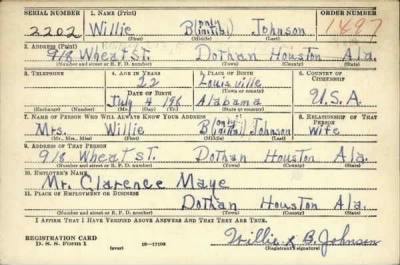 SERIAL NUMBER 1. NAME (Print) ORDER NUMBER
2202 Willie B(only initial) Johnson 1497
(First) (Middle) (Last)
2. ADDRESS (Print)
918 Wheat St. Dothan Houston Ala.
(Number and street or R. F. D. number) (Town) (County) (State)
3. TELEPHONE 4. AGE IN YEARS 5. PLACE OF BIRTH 6. COUNTRY OF CITIZENSHIP
22 Louisville
(Town or county)
DATE OF BIRTH
July 4 Alabama U.S.A.
(Exchange) (Number) (Mo.) (Day) (Yr.) (State or country)
7. NAME OF PERSON WHO WILL ALWAYS KNOW YOUR ADDRESS 8. RELATIONSHIP OF THAT PERSON
Mrs. Willie B(only initial) Johnson wife
(Mr., Mrs., Miss) (First) (Middle) (Last)
9. ADDRESS OF THAT PERSON
918 Wheat St. Dothan Houston Ala.
(Number and street or R. F. D. number) (Town) (County) (State)
10. EMPLOYER'S NAME
Mr. Clarence Maye
11. PLACE OF EMPLOYMENT OR BUSINESS
Dothan Houston Ala.
(Number and street or R. F. D. number) (Town) (County) (State)
I AFFIRM THAT I HAVE VERIFIED ABOVE ANSWERS AND THAT THEY ARE TRUE.
REGISTRATION CARD
D. S. S. Form 1 (over) 16—17105 Willie B. Johnson
(Registrant's signature)